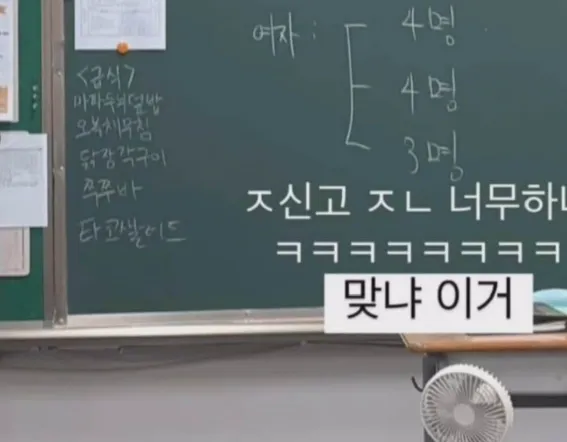 여자 :
4명
4명
3명
<급식>
마파두부덮밥
오복채무침
닭깡각구이
쭈쭈바
ㅈ신고 ㅈㄴ 너무하네
ㅋㅋㅋㅋㅋㅋㅋㅋㅋ
맞냐 이거